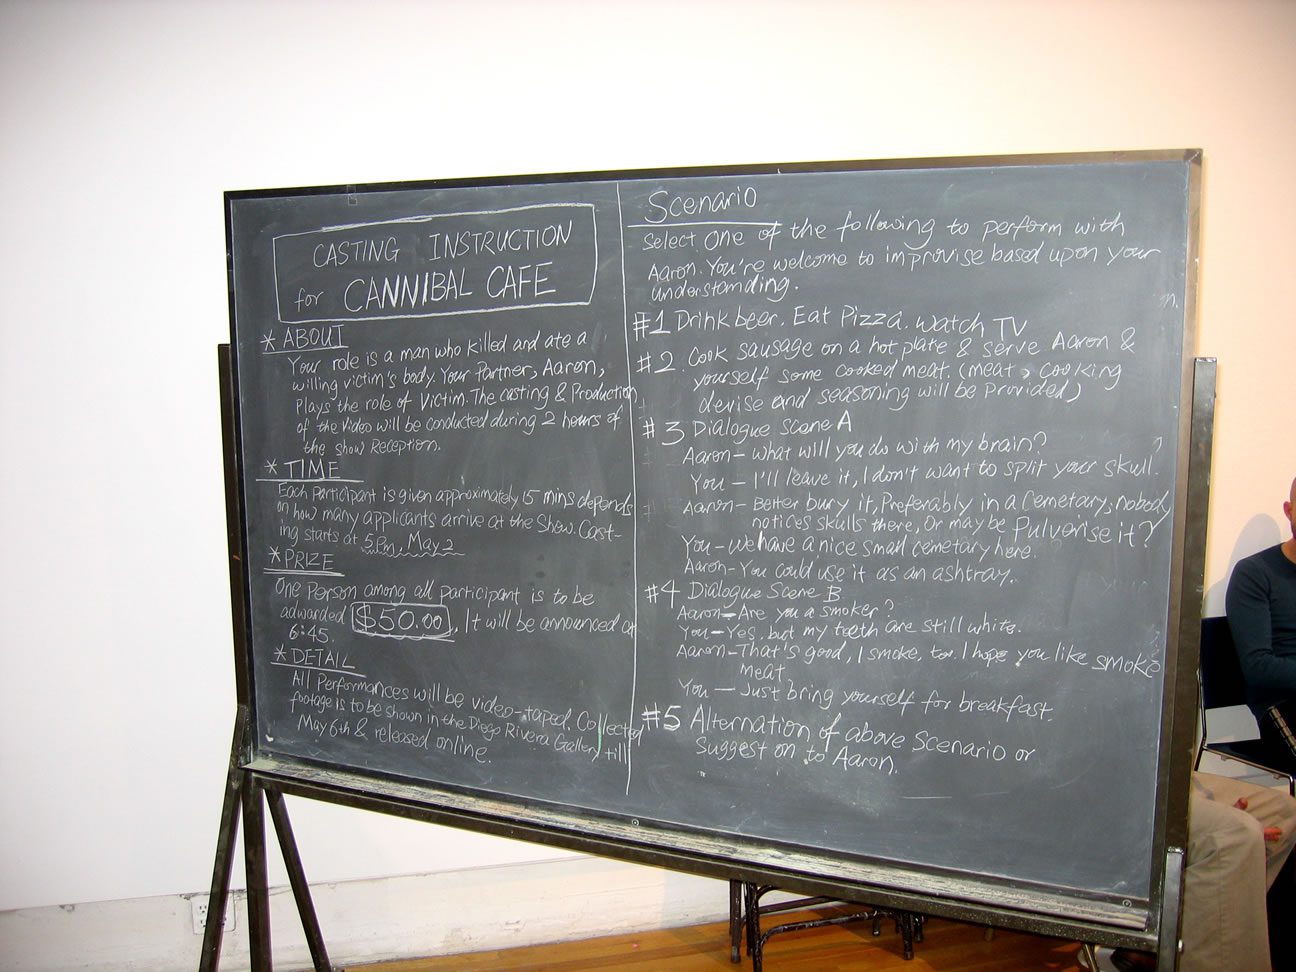 CASTING INSTRUCTION
for CANNIBAL CAFE
* ABOUT
Your role is a man who killed and ate a
willing victim's body. Your Partner, Aaron,
Plays the role of Victim. The casting & Production
of the video will be conducted during 2 hours of
the show Reception.
* TIME
Each Participant is given approximately 15 mins depends
on how many applicants arrive at the Show. Cast-
ing starts at 5Pm, May 2
* PRIZE
One Person among all participant is to be
adwarded $50.00. It will be announced at
6:45.
* DETAIL
All Performances will be video-taped. Collected
footage is to be shown in the Diego Rivera Gallery till
May 6th & released online.
Scenario
Select One of the following to perform with
Aaron. You're welcome to improvise based upon your
understanding.
#1 Drink beer. Eat Pizza. watch TV
#2. Cook sausage on a hot plate & serve Aaron &
yourself some cooked meat. (meat, cooking
devise and seasoning will be provided)
#3 Dialogue Scene A
Aaron – what will you do with my brain?
You – I'll leave it, I don't want to split your skull.
Aaron – Better bury it, Preferably in a Cemetary, nobody
notices skulls there, Or may be Pulverise it?
You – We have a nice small cemetary here.
Aaron – You could use it as an ashtray.
#4 Dialogue Scene B
Aaron – Are you a smoker?
You – Yes, but my teeth are still white.
Aaron – That's good, I smoke, too. I hope you like smoke
meat.
You – Just bring yourself for breakfast.
#5 Alternation of above Scenario or
Suggest on to Aaron.